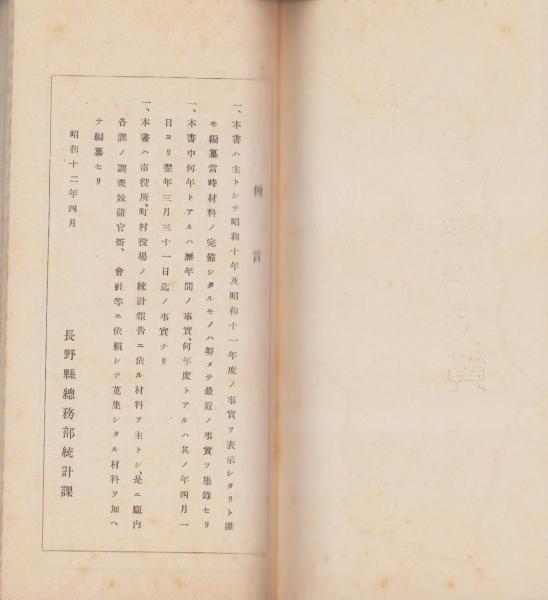 例言
一、本書ハ主トシテ昭和十年及昭和十一年度ノ事實ヲ表示シタリト雖
モ編纂當時材料ノ完備シタルモノハ努メテ最近ノ事實ヲ集錄セリ
一、本書中何年トアルハ歷年間ノ事實、何年度トアルハ其ノ年四月一
日ヨリ翌年三月三十一日迄ノ事實ナリ
一、本書ハ市役所、町村役場ノ統計報告ニ依ル材料ヲ主トシ、是ニ廳內
各課ノ調査竝諸官衙、會社等ニ依賴シテ蒐集シタル材料ヲ加ヘ
テ編纂セリ
昭和十二年四月
長野縣總務部統計課